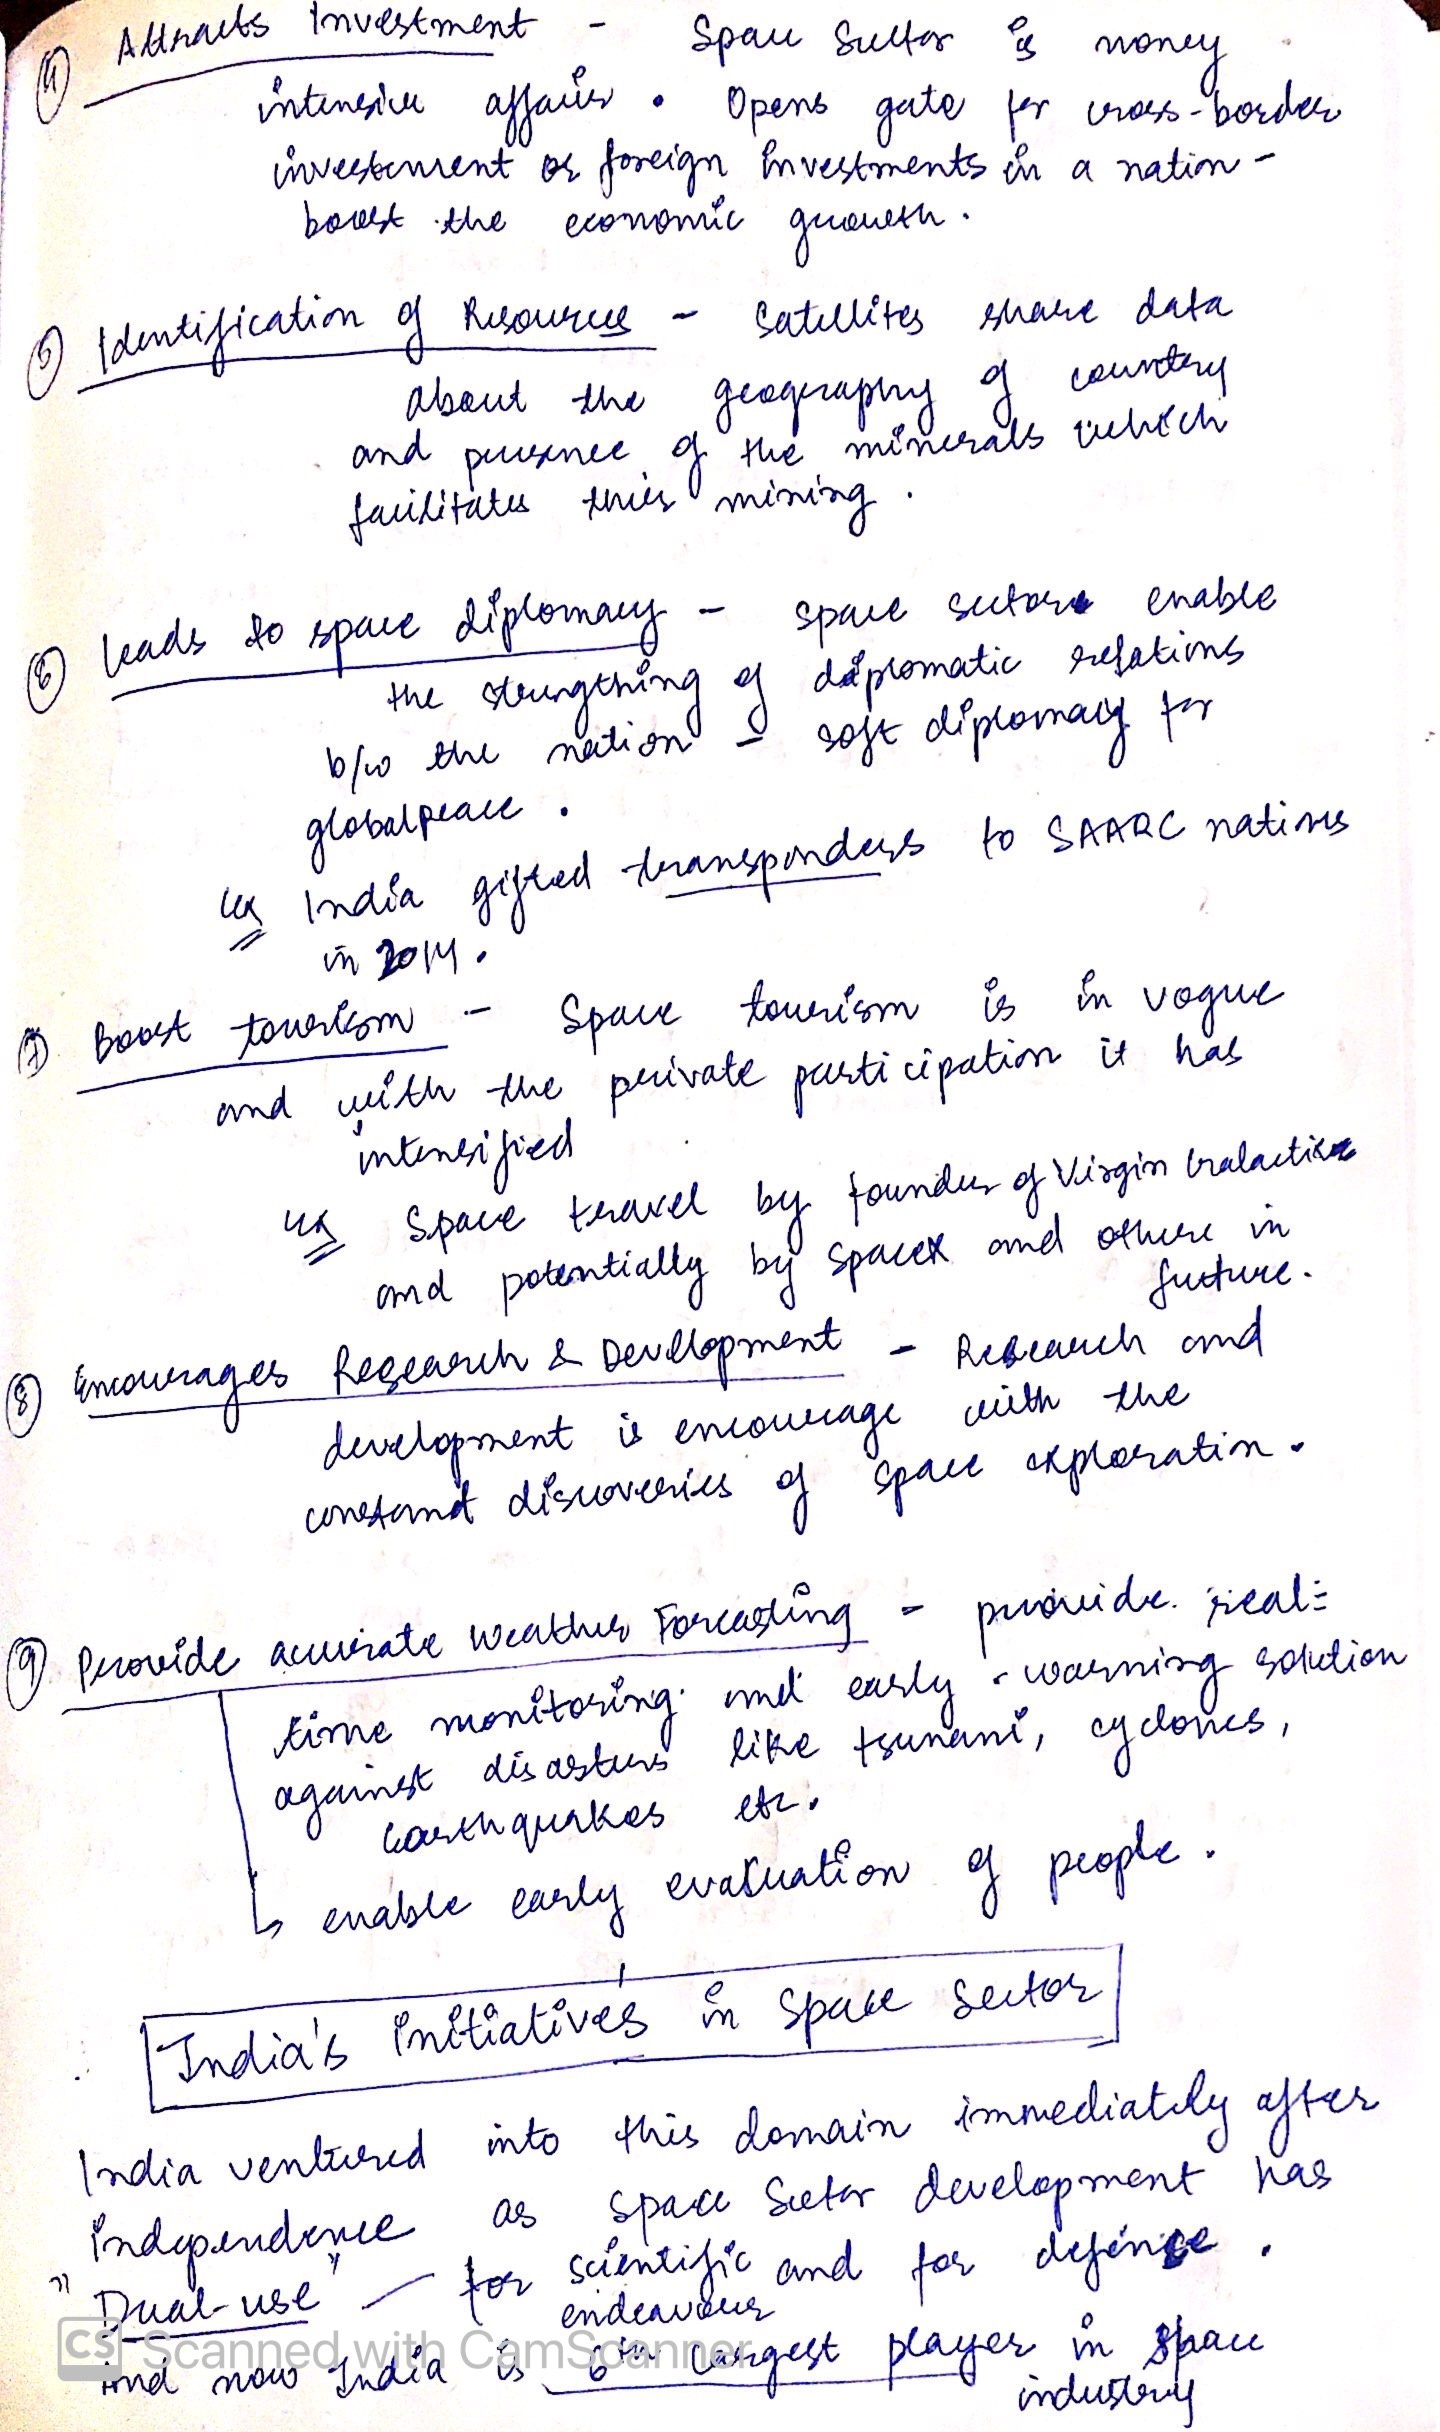 ④ Attracts Investment - Space Sector is money
intensive affair. Opens gate for cross-border
investment or foreign investments in a nation -
boost the economic growth.
⑤ Identification of Resources - Satellites share data
about the geography of country
and presence of the minerals which
facilitates their mining.
⑥ leads to space diplomacy - space sector enable
the strengthing of diplomatic relations
b/w the nation - soft diplomacy for
global peace.
ex India gifted transponders to SAARC nations
in 2014.
⑦ Boost tourism - Space tourism is in vogue
and with the private participation it has
intensified
ex Space travel by founder of Virgin Galactica
and potentially by SpaceX and others in
future.
⑧ Encourages Research & Development - Research and
development is encourage with the
constant discoveries of space exploration.
⑨ Provide accurate Weather Forcasting - provide real-
time monitoring and early-warning solution
against disasters like tsunami, cyclones,
earthquakes etc.
↳ enable early evaluation of people.
India's initiatives in Space Sector
India ventured into this domain immediately after
independence as Space Sector development has
"Dual-use" - for scientific and for defence.
endeavour
And now India is 6th largest player in space
industry
CS Scanned with CamScanner